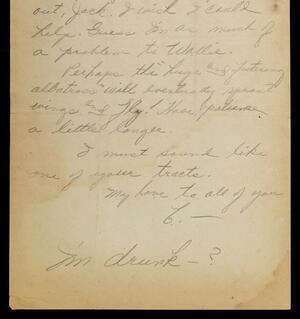 out, Jack. I wish I could
help. Guess I'm as much of
a problem to Willie.
Perhaps this huge and
albatross will eventually sprout
wings and fly! Have patience
a little longer.
I must sound like
one of your tracts.
My love to all of you
E. —
I'm drunk — ?